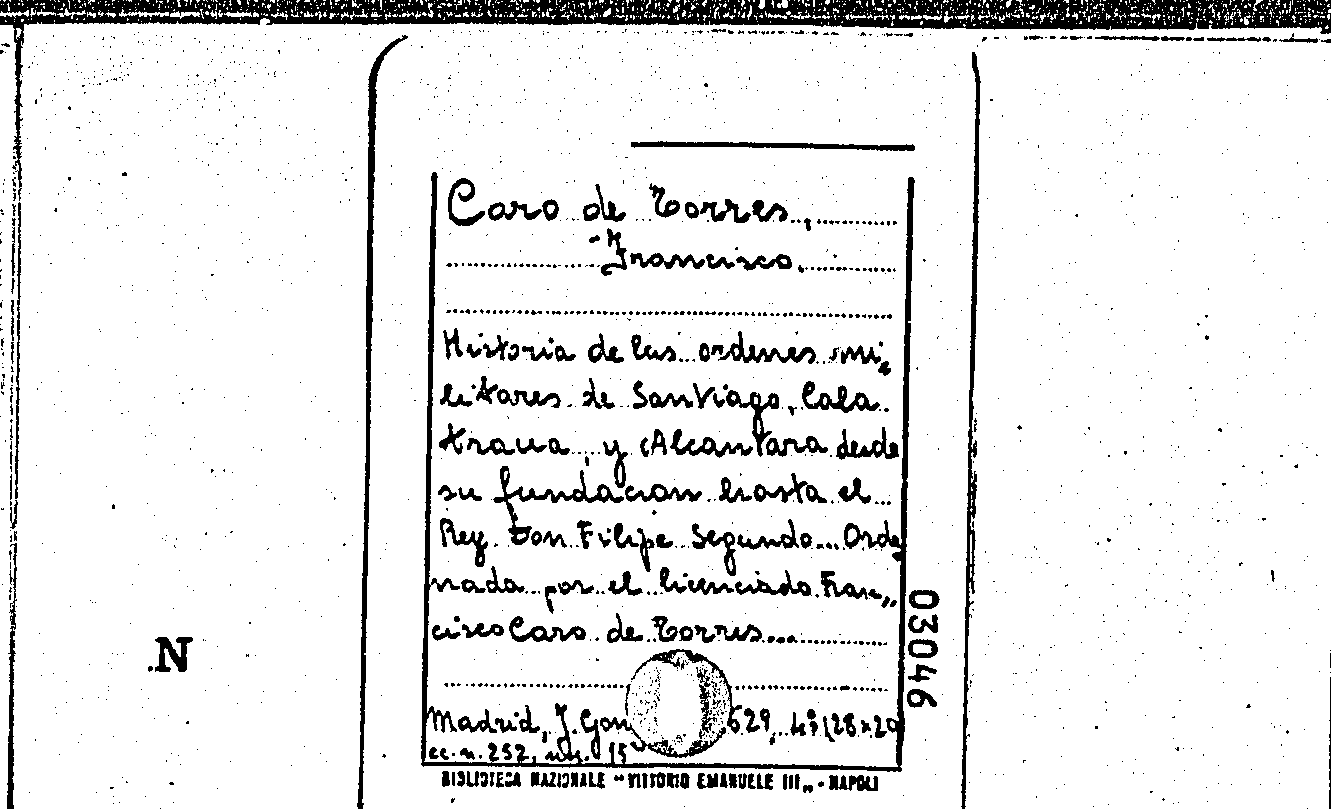 Caro de Torres,
Francisco.
Historia de las ordenes mi,
litares de Santiago, Cala
traua, y Alcantara desde
su fundacion hasta el
Rey Don Filipe Segundo... Orde
nada por el licenciado Fran,,
cisco Caro de Torres...
Madrid, J. Gon 629, 4º (28x20
cc. n. 252,
BIBLIOTECA NAZIONALE "VITTORIO EMANUELE III„ - NAPOLI
03046
.N